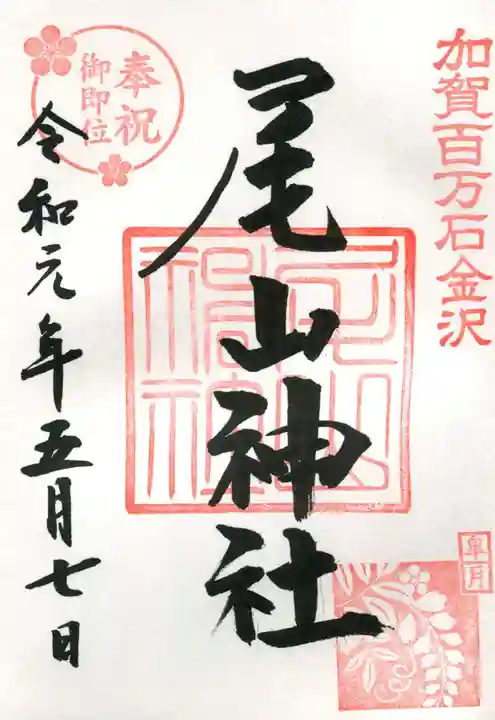 加賀百万石金沢
皐月
尾山神社
尾山神社
奉祝
御即位
令和元年五月七日